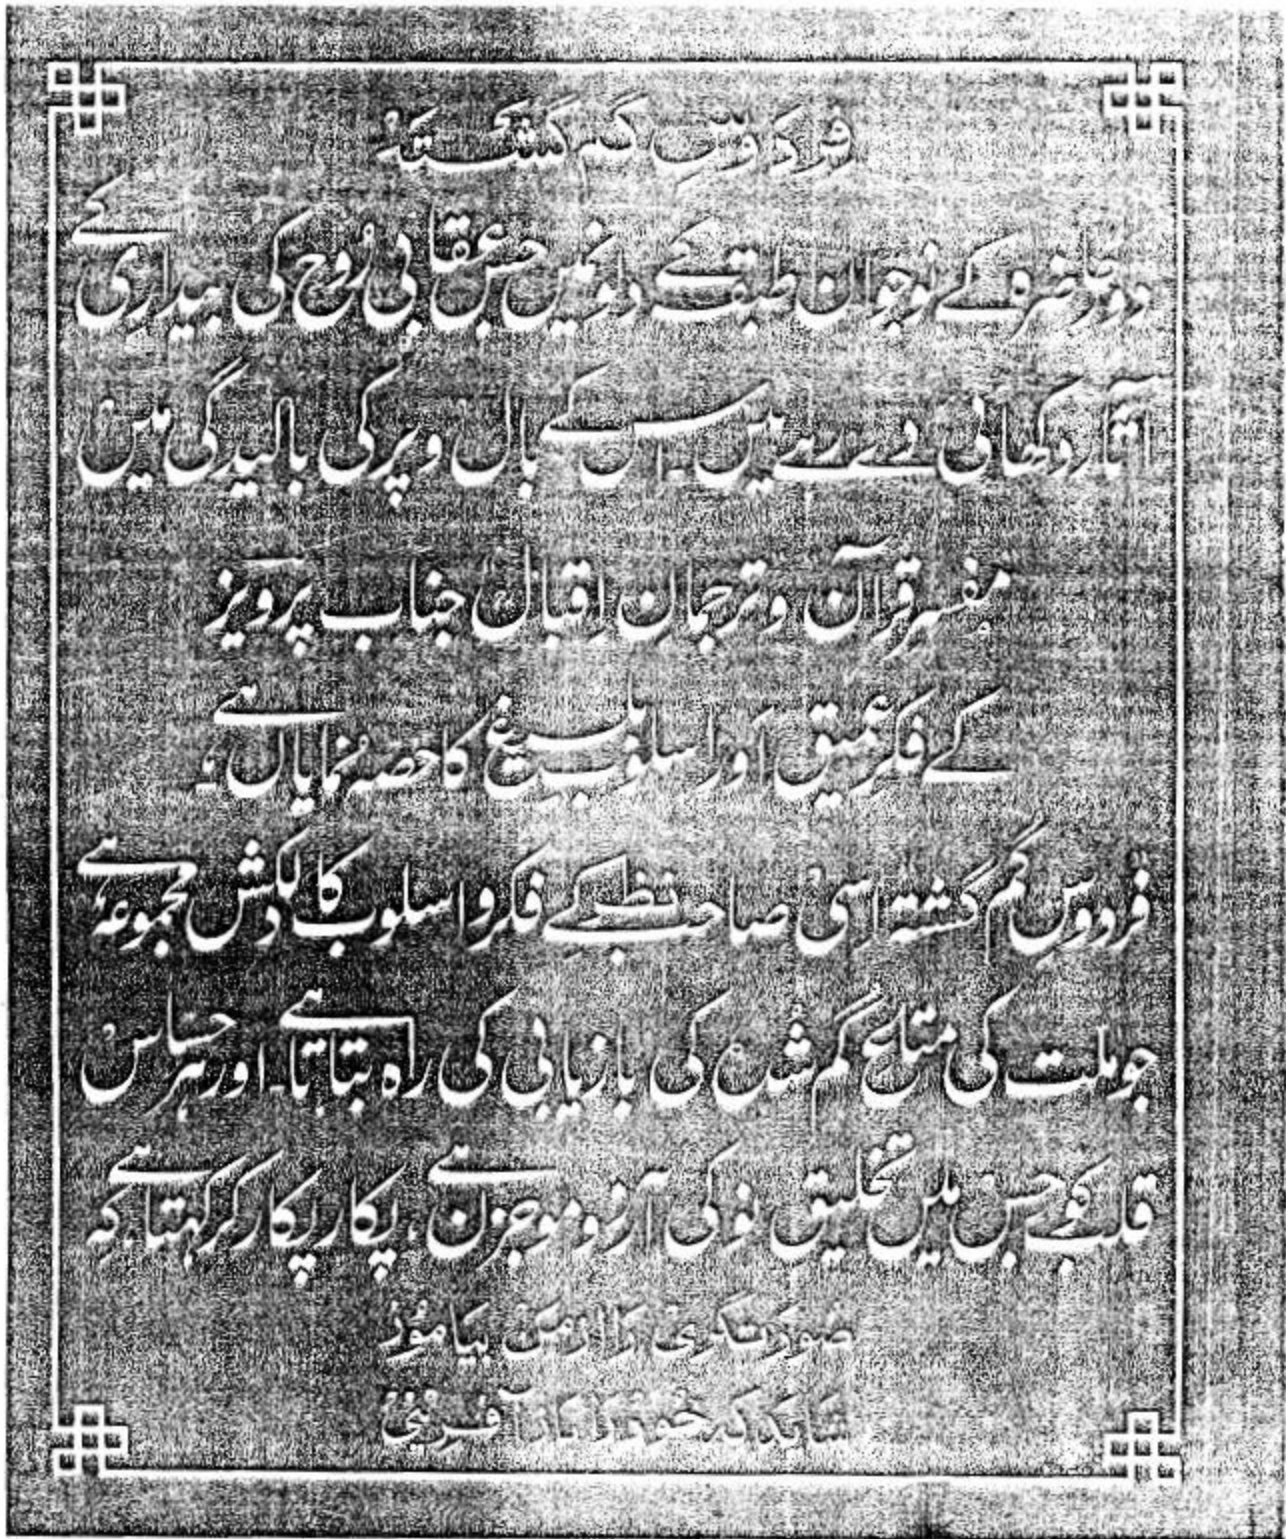 فردوسِ گم گشتہ
دورِ حاضرہ کے نوجوان طبقے کے دلوں میں جس عقابی رُوح کی بیداری کے
آثار دکھائی دے رہے ہیں۔ اس کے بال و پر کی بالیدگی میں
مفسرِ قرآن و ترجمانِ اقبالؒ جناب پرویز
کے فکرِ عمیق اور اسلوبِ بلیغ کا حصہ نمایاں ہے،
فردوسِ گم گشتہ اسی صاحبِ نظر کے فکر و اسلوب کا دلکش مجموعہ ہے
جو ملت کی متاعِ گم شدہ کی بازیابی کی راہ بتاتا ہے۔ اور ہر حساس
قلب کو جس میں تخلیقِ نو کی آرزو موجزن ہے، پکار پکار کر کہتا ہے کہ
صورت گری را از من بیاموز
شاید کہ خود را باز آفرینی